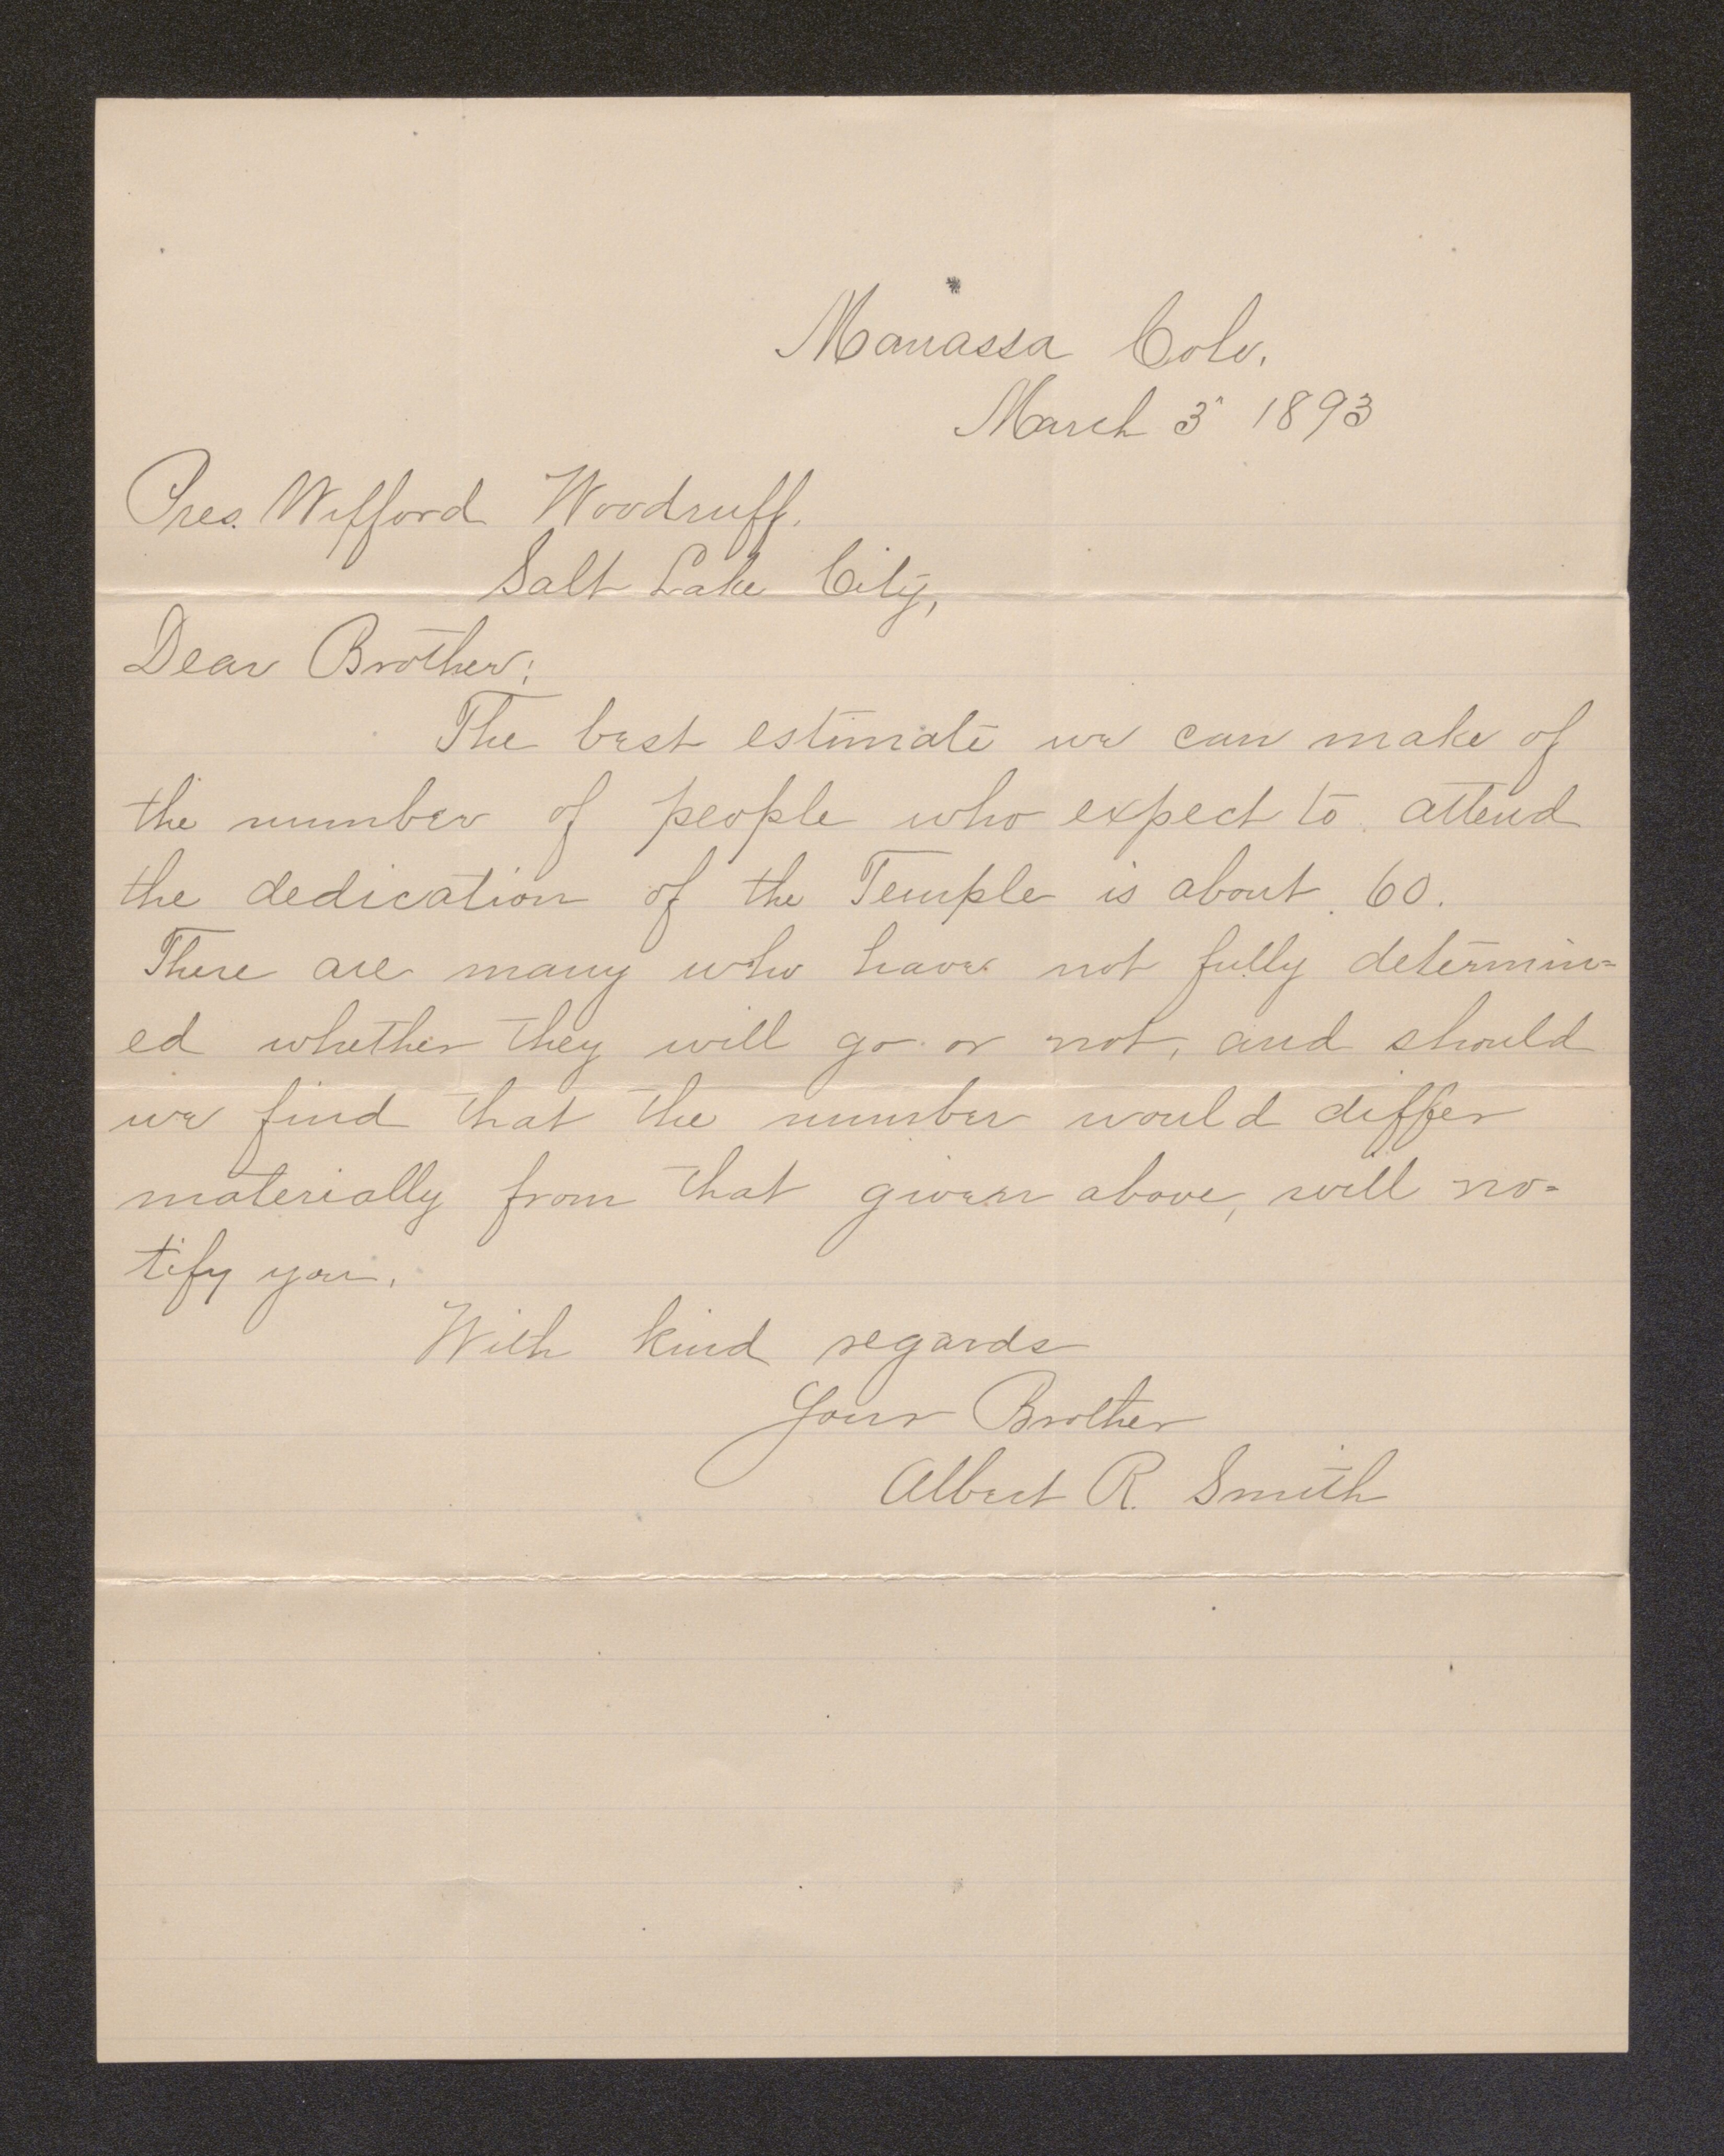 Manassa Colo.
March 3" 1893
Pres. Wifford Woodruff.
Salt Lake City,
Dear Brother:
The best estimate we can make of
the number of people who expect to attend
the dedication of the Temple is about 60.
There are many who have not fully determin=
ed whether they will go or not, and should
we find that the number would differ
materially from that given above, will no=
tify you.
With kind regards
Your Brother
Albert R. Smith